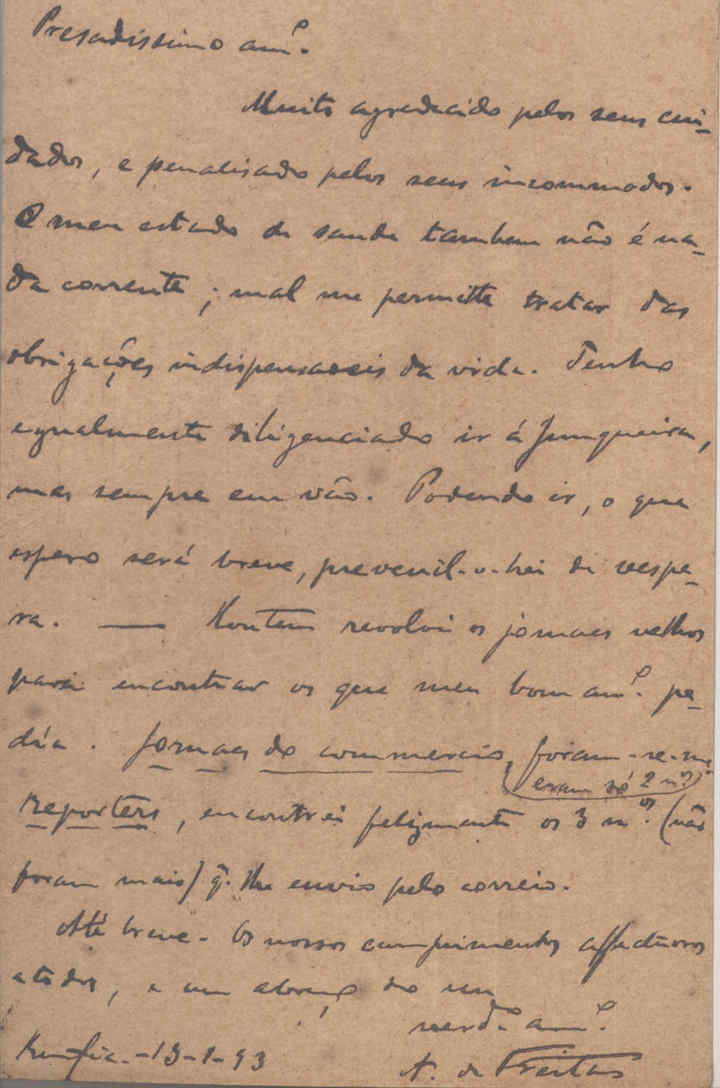 Presadissimo amº.
Muito agradecido pelos seus cui-
dados, e penalisado pelos seus incommodos.
O meu estado de saude tambem não é na-
da corrente; mal me permitte tratar das
obrigações indispensaveis da vida. Tenho
egualmente diligenciado ir á Junqueira,
mas sempre em vão. Podendo ir, o que
espero será breve, prevenil-o-hei de vespe-
ra. — Hontem revolvi os jornaes velhos
para encontrar os que meu bom amº. pe-
dia. Jornaes do commercio, foram-se-me
(eram só 2 nºs)
Reporters, encontrei felizmente os 3 nºs. (não
foram mais) q̃. lhe envio pelo correio.
Até breve. Os nossos cumprimentos affectuosos
a todos, e um abraço do seu
verdº. amº.
13-1-93 A. de Freitas